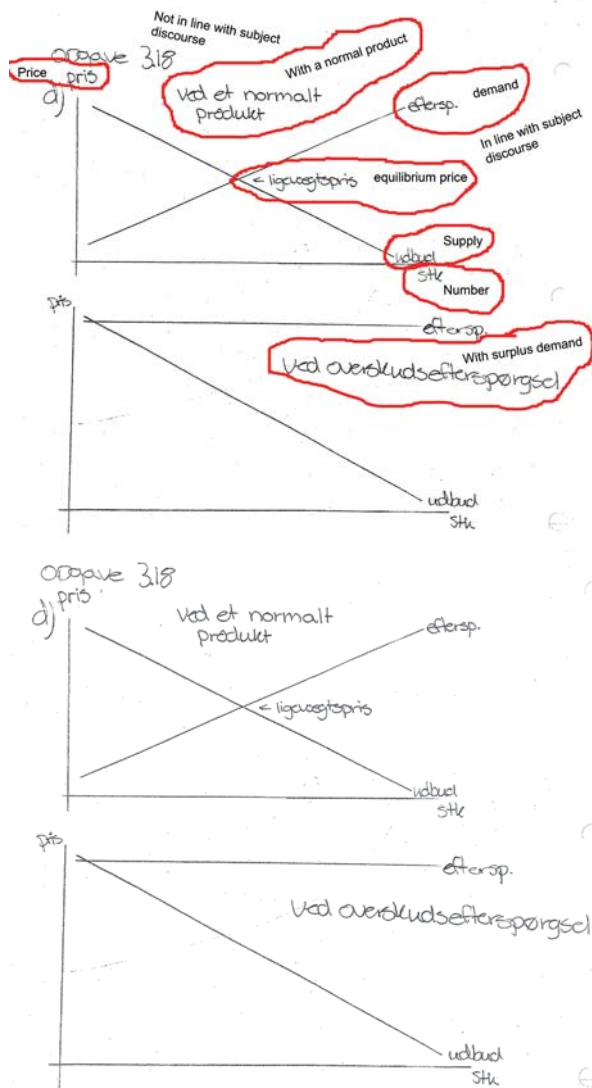 Not in line with subject
discourse
opgave 3.18
Price
pris
a)
With a normal product
Ved et normalt
produkt
eftersp. demand
In line with subject
discourse
< ligevægtspris equilibrium price
Supply
udbud
stk
Number
pris
eftersp.
With surplus demand
Ved overskudsefterspørgsel
udbud
stk
opgave 3.18
pris
d)
Ved et normalt
produkt
eftersp.
< ligevægtspris
udbud
stk
pris
eftersp.
Ved overskudsefterspørgsel
udbud
stk